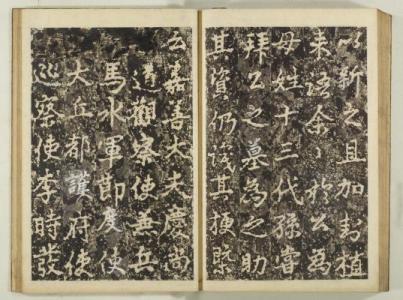 以新之且加封植
来語余〻於公為
母姓十三代孫嘗
拜公之墓為之助
其資仍識其梗槩
云嘉善大夫慶尚
道觀察使兼兵
馬水軍節度使
大丘都護府使
巡察使李時發